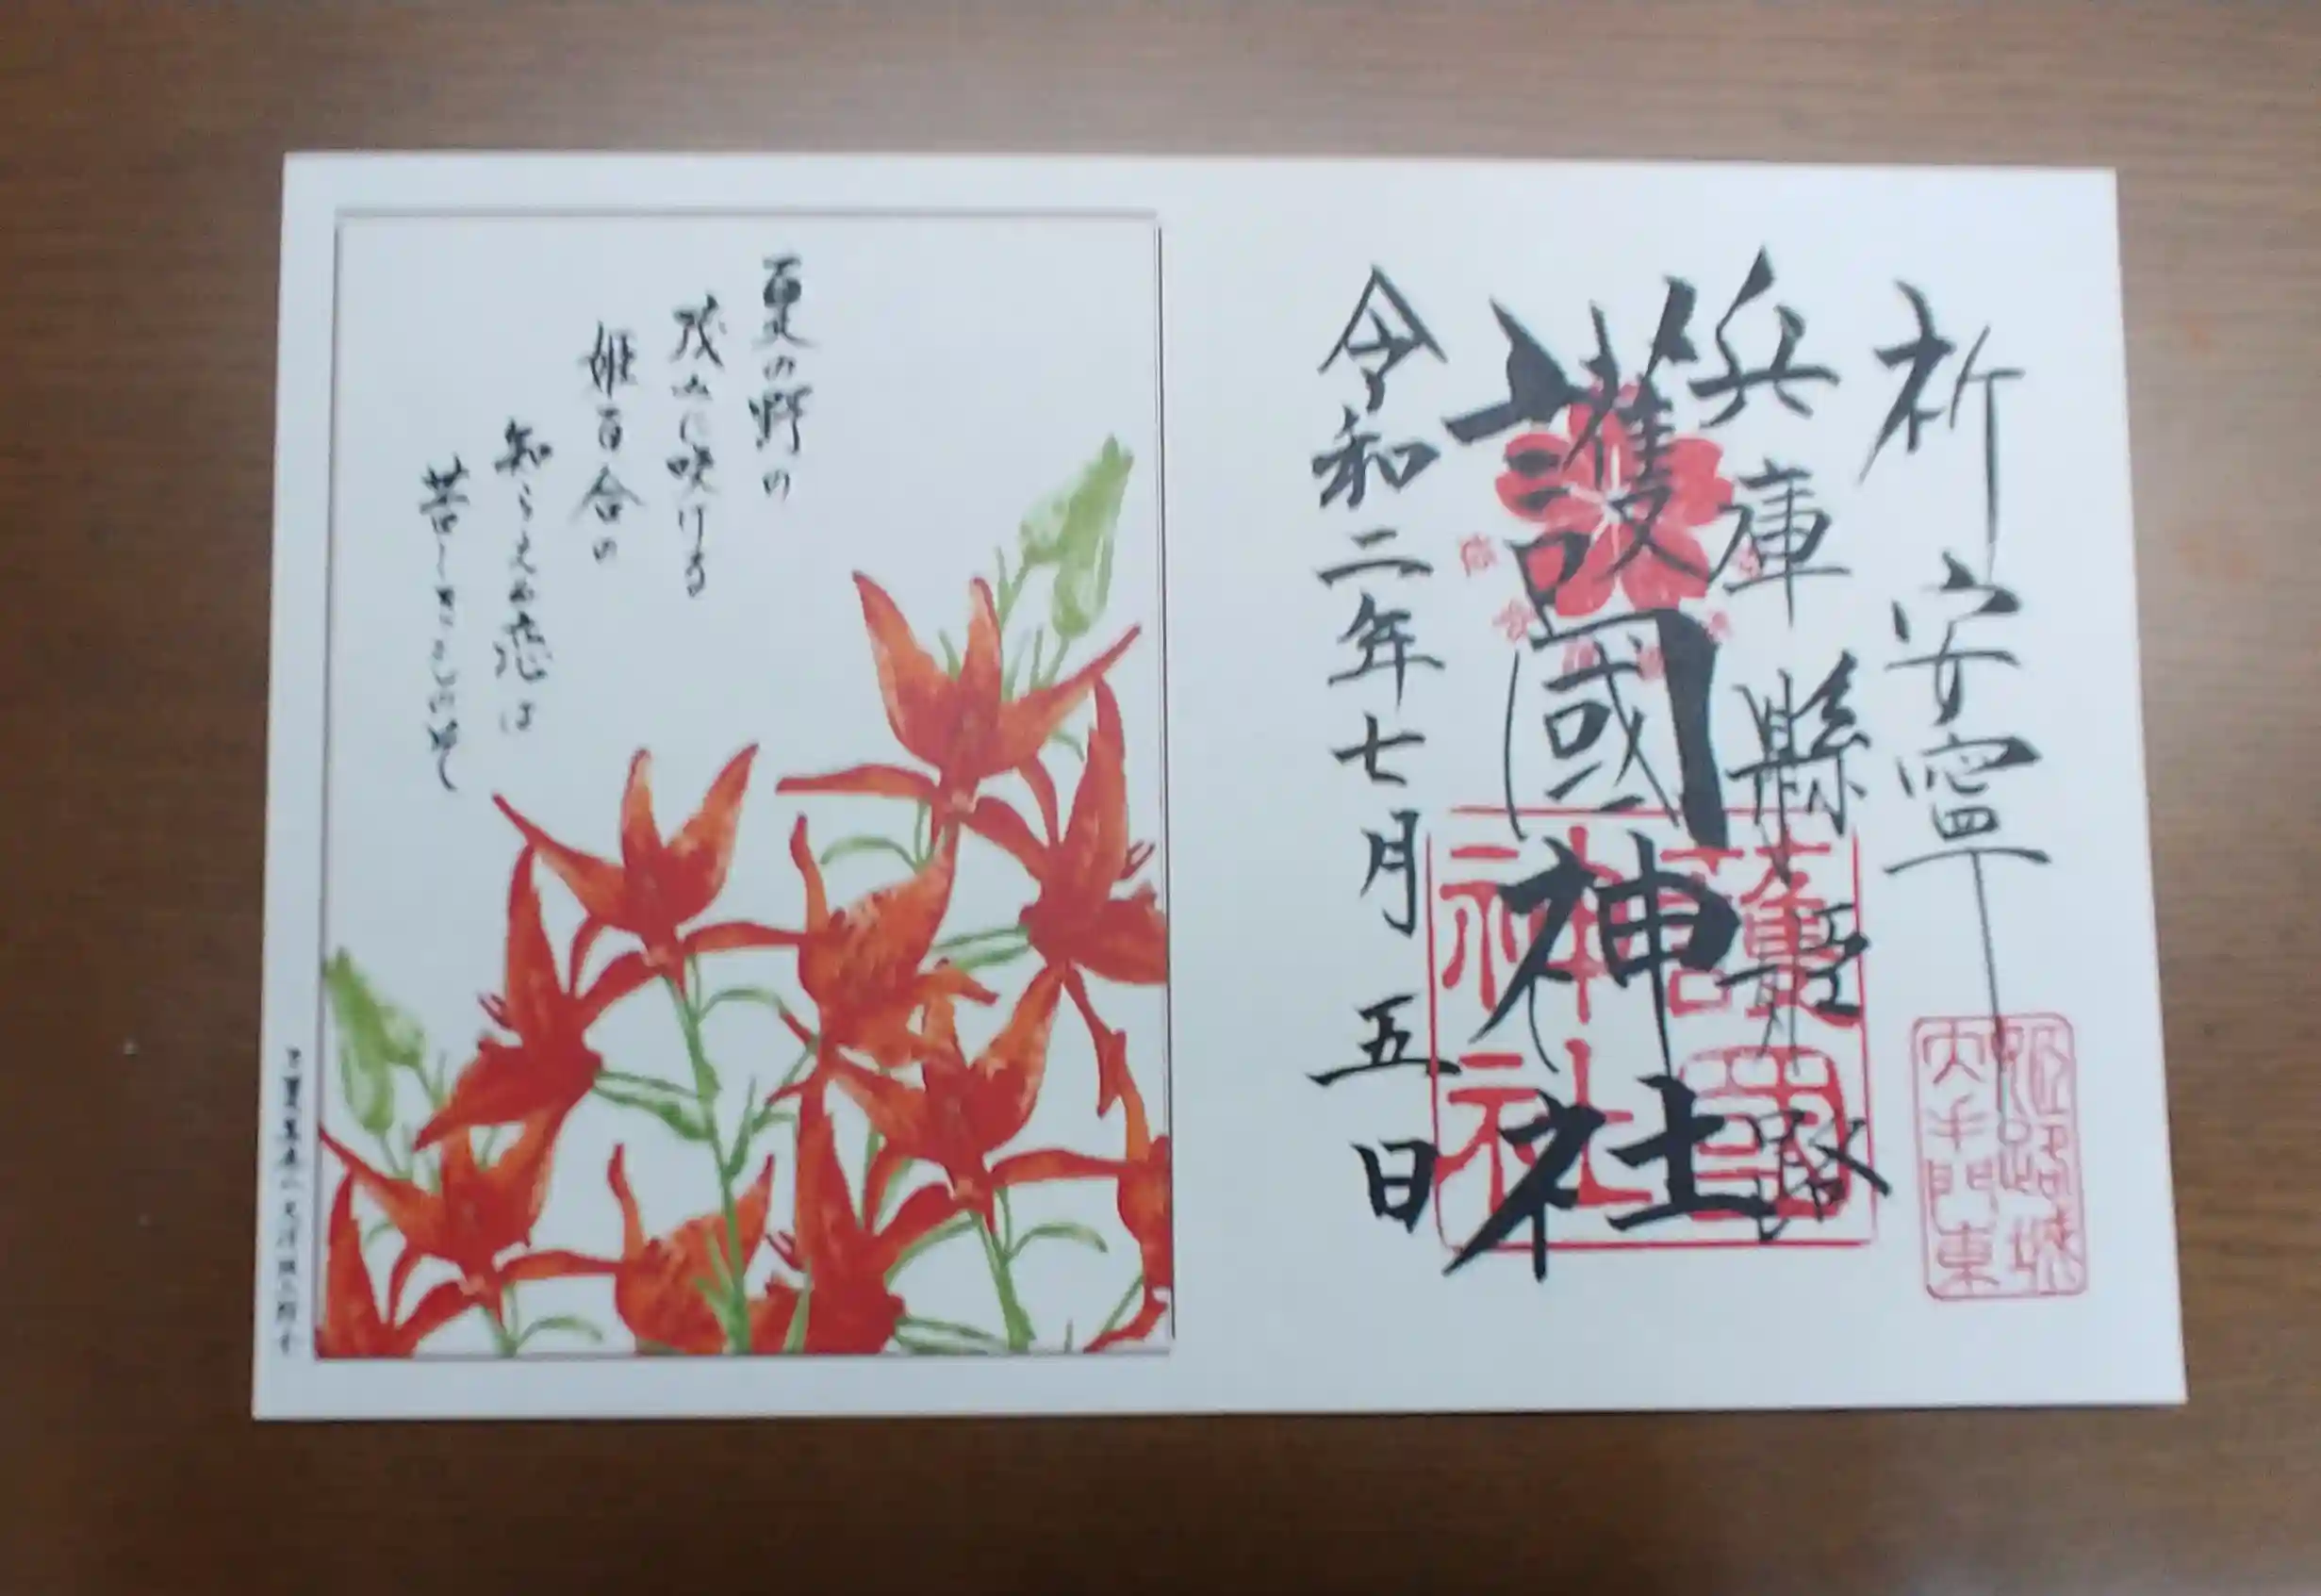 祈安寧
兵庫縣姫路
護國神社
令和二年七月五日
護國
神社
姫路城
大手門東
夏の野の
茂みに咲ける
姫百合の
知らえぬ恋は
苦しきものぞ